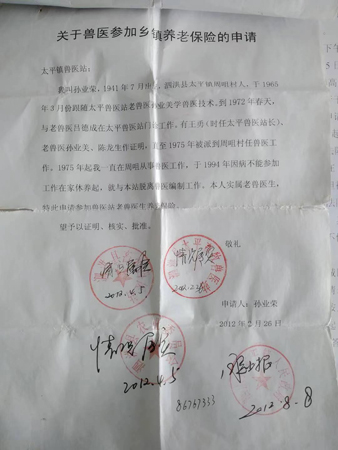 关于兽医参加乡镇养老保险的申请
太平镇兽医站：
我叫孙业荣，1941年7月出生，泗洪县太平镇周咀村人，于1965
年3月份跟随太平兽医站老兽医孙业美学兽医技术，到1972年春天，
与老兽医吕德成在太平兽医站门诊工作，有王勇（时任太平兽医站长）、
老兽医孙业关、陈龙生作证明，直至1975年被派到周咀村任兽医工
作。1975年起我一直在周咀从事兽医工作，于1994年因病不能参加
工作在家休养起，就与本站脱离兽医编制工作。本人实属老兽医生，
特此申请参加兽医站老兽医生养老保险。
望予以证明、核实、批准。
敬礼
情况属实
2012.4.5
情况属实
申请人：孙业荣
2012年3月26荣
情况属实
2012.4.5
86767333
2012.8.8